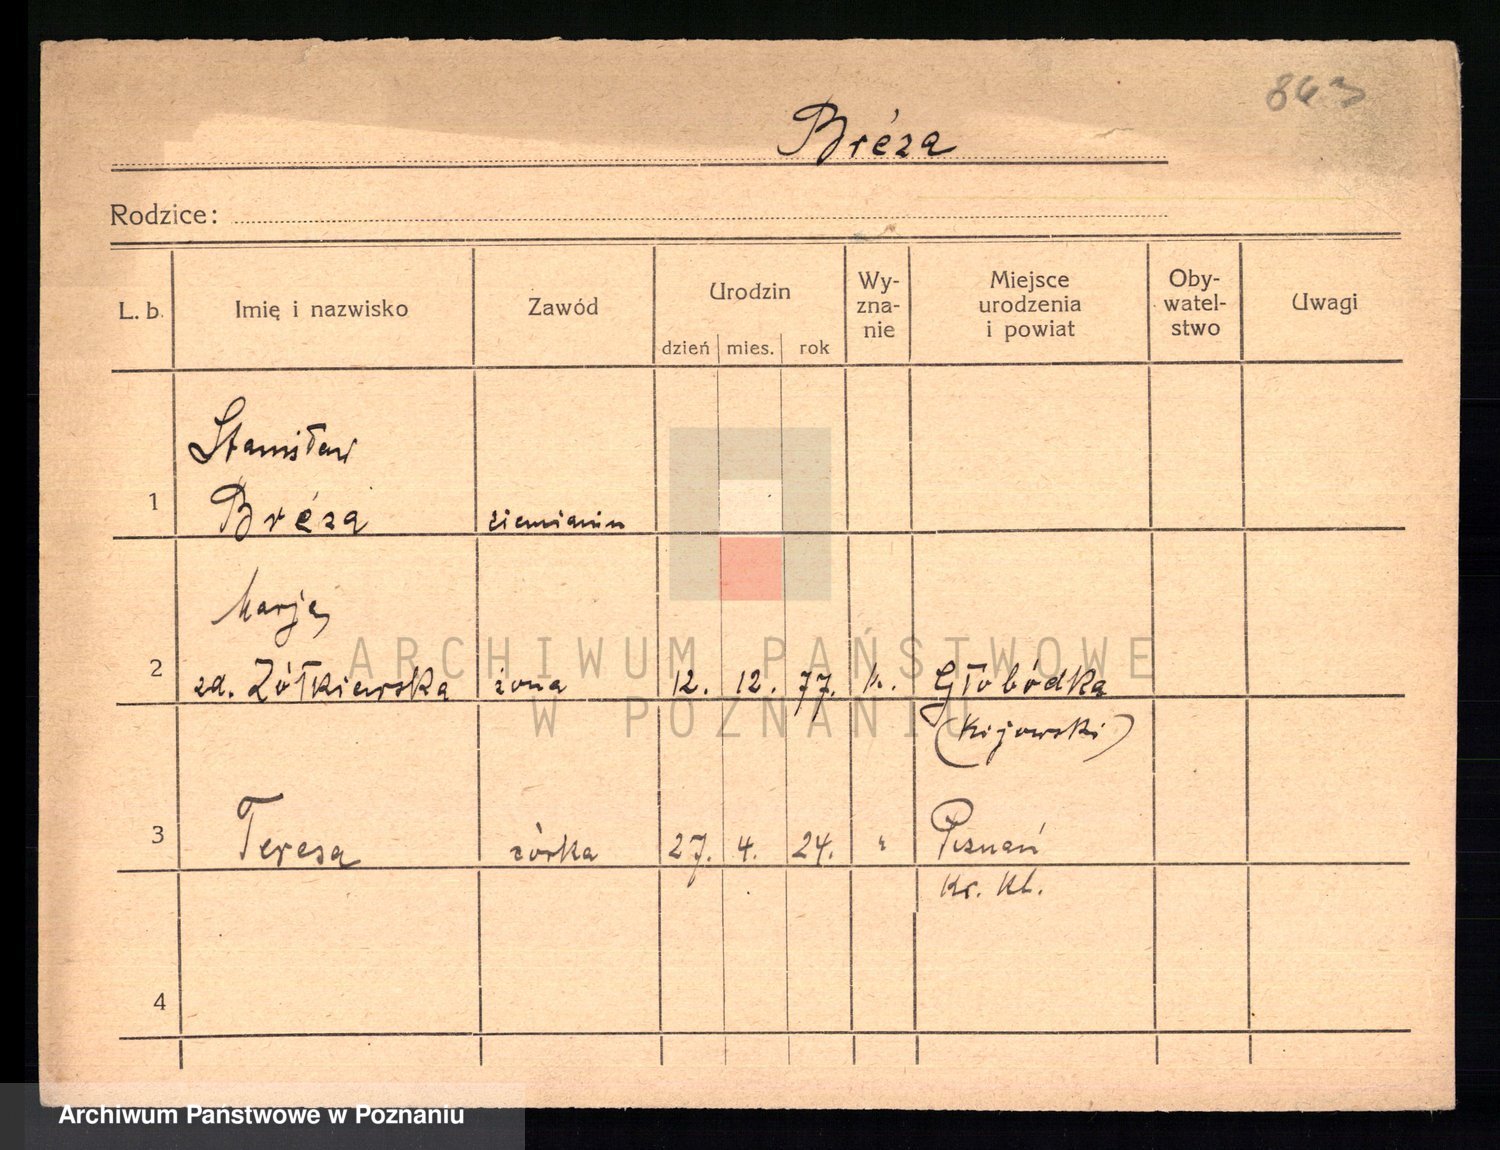 863
Bréza
Rodzice:
L. b. Imię i nazwisko Zawód Urodzin dzień mies. rok Wy-zna-nie Miejsce urodzenia i powiat Oby-watel-stwo Uwagi
Stanisław
1 Bréza ziemianin
Marja
2 zd. Żółkiewska żona 12. 12. 77. k. Głobódka
(Kijowski)
3 Teresa córka 27. 4. 24. " Poznań
4
ARCHIWUM PAŃSTWOWE
W POZNANIU
Archiwum Państwowe w Poznaniu